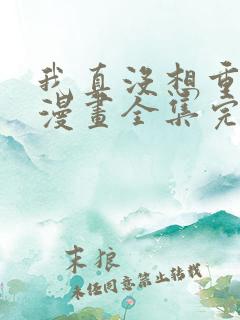 我真没想重
漫畫全集完
末狼
未经同意禁止转载